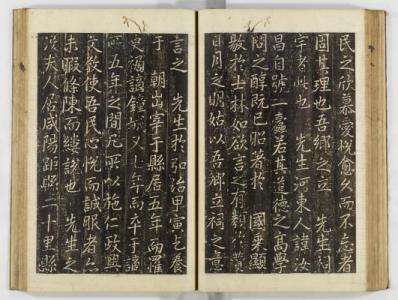 民之欣慕愛悅愈久而不忘者
固其理也吾鄉之立 先生祠
宇者此也 先生河東人諱汝
昌自號一蠹若其道德之高學
問之醇旣已昭著於 國乘顯
敭於士林如欲言之有類於贊
日月之明姑以吾鄉立祠之意
言之 先生於弘治甲寅乞養
于 朝出宰于縣居五年而罹
史禍謫鍾城又七年而卒于謫
所五年之間凡所以施仁政興
文敎使吾民心悅而誠服者亦
未暇條陳而縷說也 先生之
夫人居咸陽距縣二十里縣